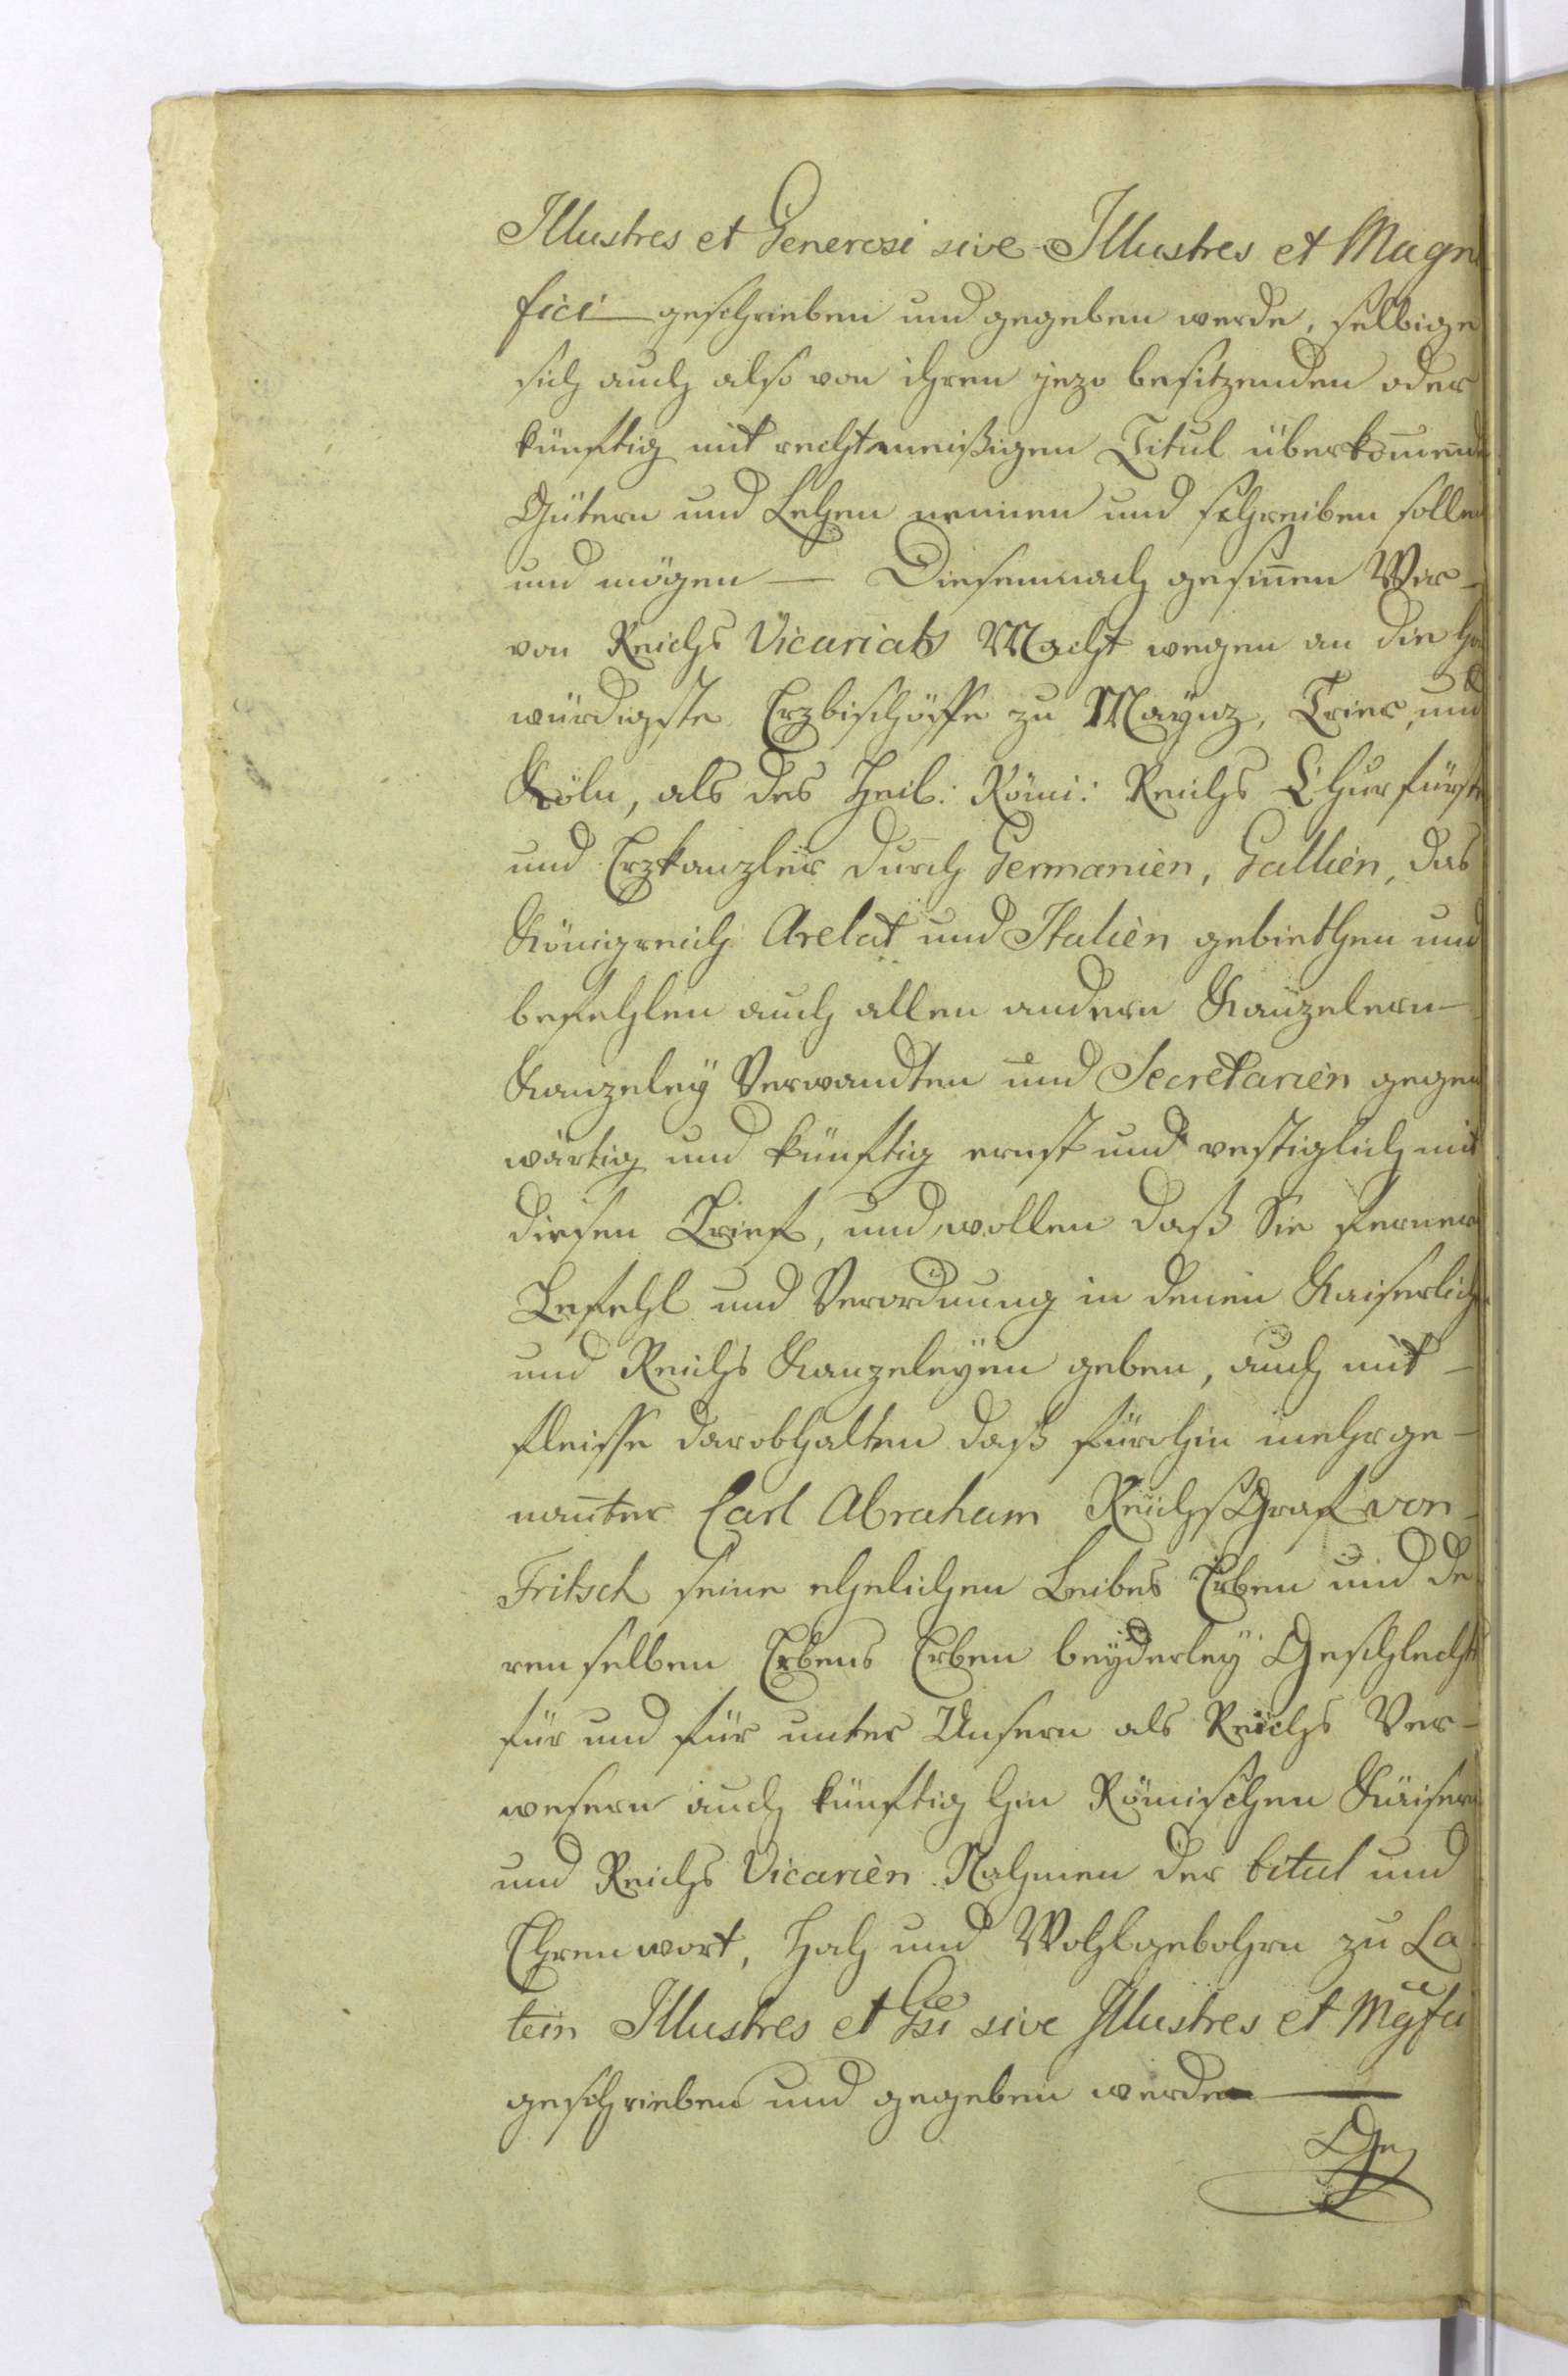 Illustres et Generosi sive Illustres et Magni
fici geschrieben und gegeben werde, selbige
sich auch also von ihren jezo besitzenden oder
künftig mit rechtmeißigen Titul überkom̅en̅de
Gütern und Lehen nennen und schreiben sollen
und mögen — Diesemnach gesin̅en Wir
von Reichs Vicariats Macht wegen an die
würdigste Erzbischöffe zu Maÿnz, Trier, und
Köln, als des Heil: Römi: Reichs Churfürste
und Erzkanzler durch Germanièn, Gallièn, das
Königreich Arelat und Italièn gebiethen und
befehlen auch allen andern Kanzelern
Kanzeleÿ Verwandten und Secretarièn gegen
wärtig und künftig ernst und vestiglich mit
diesen Brief, und wollen daß Sie ferner
Befehl und Verordnung in denen Kaiserlich
und Reichs Kanzeleÿen geben, auch mit
fleisse darobhalten daß fürohin mehrge-
nan̅ter Carl Abraham Reichs Graf von
Fritsch seine ehelichen Leibes Erben und de
renselben Erbens Erben beÿderleÿ Geschlechts
für und für unter Unsern als Reichs Ver-
wesern auch künftig hin Römischen Kaisern
und Reichs Vicarièn Nahmen der titul und
Ehrenwort, Hoh und Wohlgebohrn zu La
tein Illustres et Gsi sive Illustres et Mgfci
geschrieben und gegeben werde —